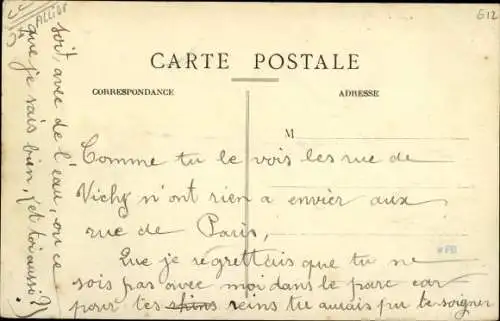 ALLIER
G12
CARTE POSTALE
CORRESPONDANCE
ADRESSE
M
Comme tu le vois les rue de
Vichy n'ont rien a envier aux
rue de Paris,
Que je regrettais que tu ne
sois pas avec moi dans le parc car
pour tes reins tu aurais pu te soigner
soit, avec de l'eau, ou ce
que je sais bien, (et toi aussi?)